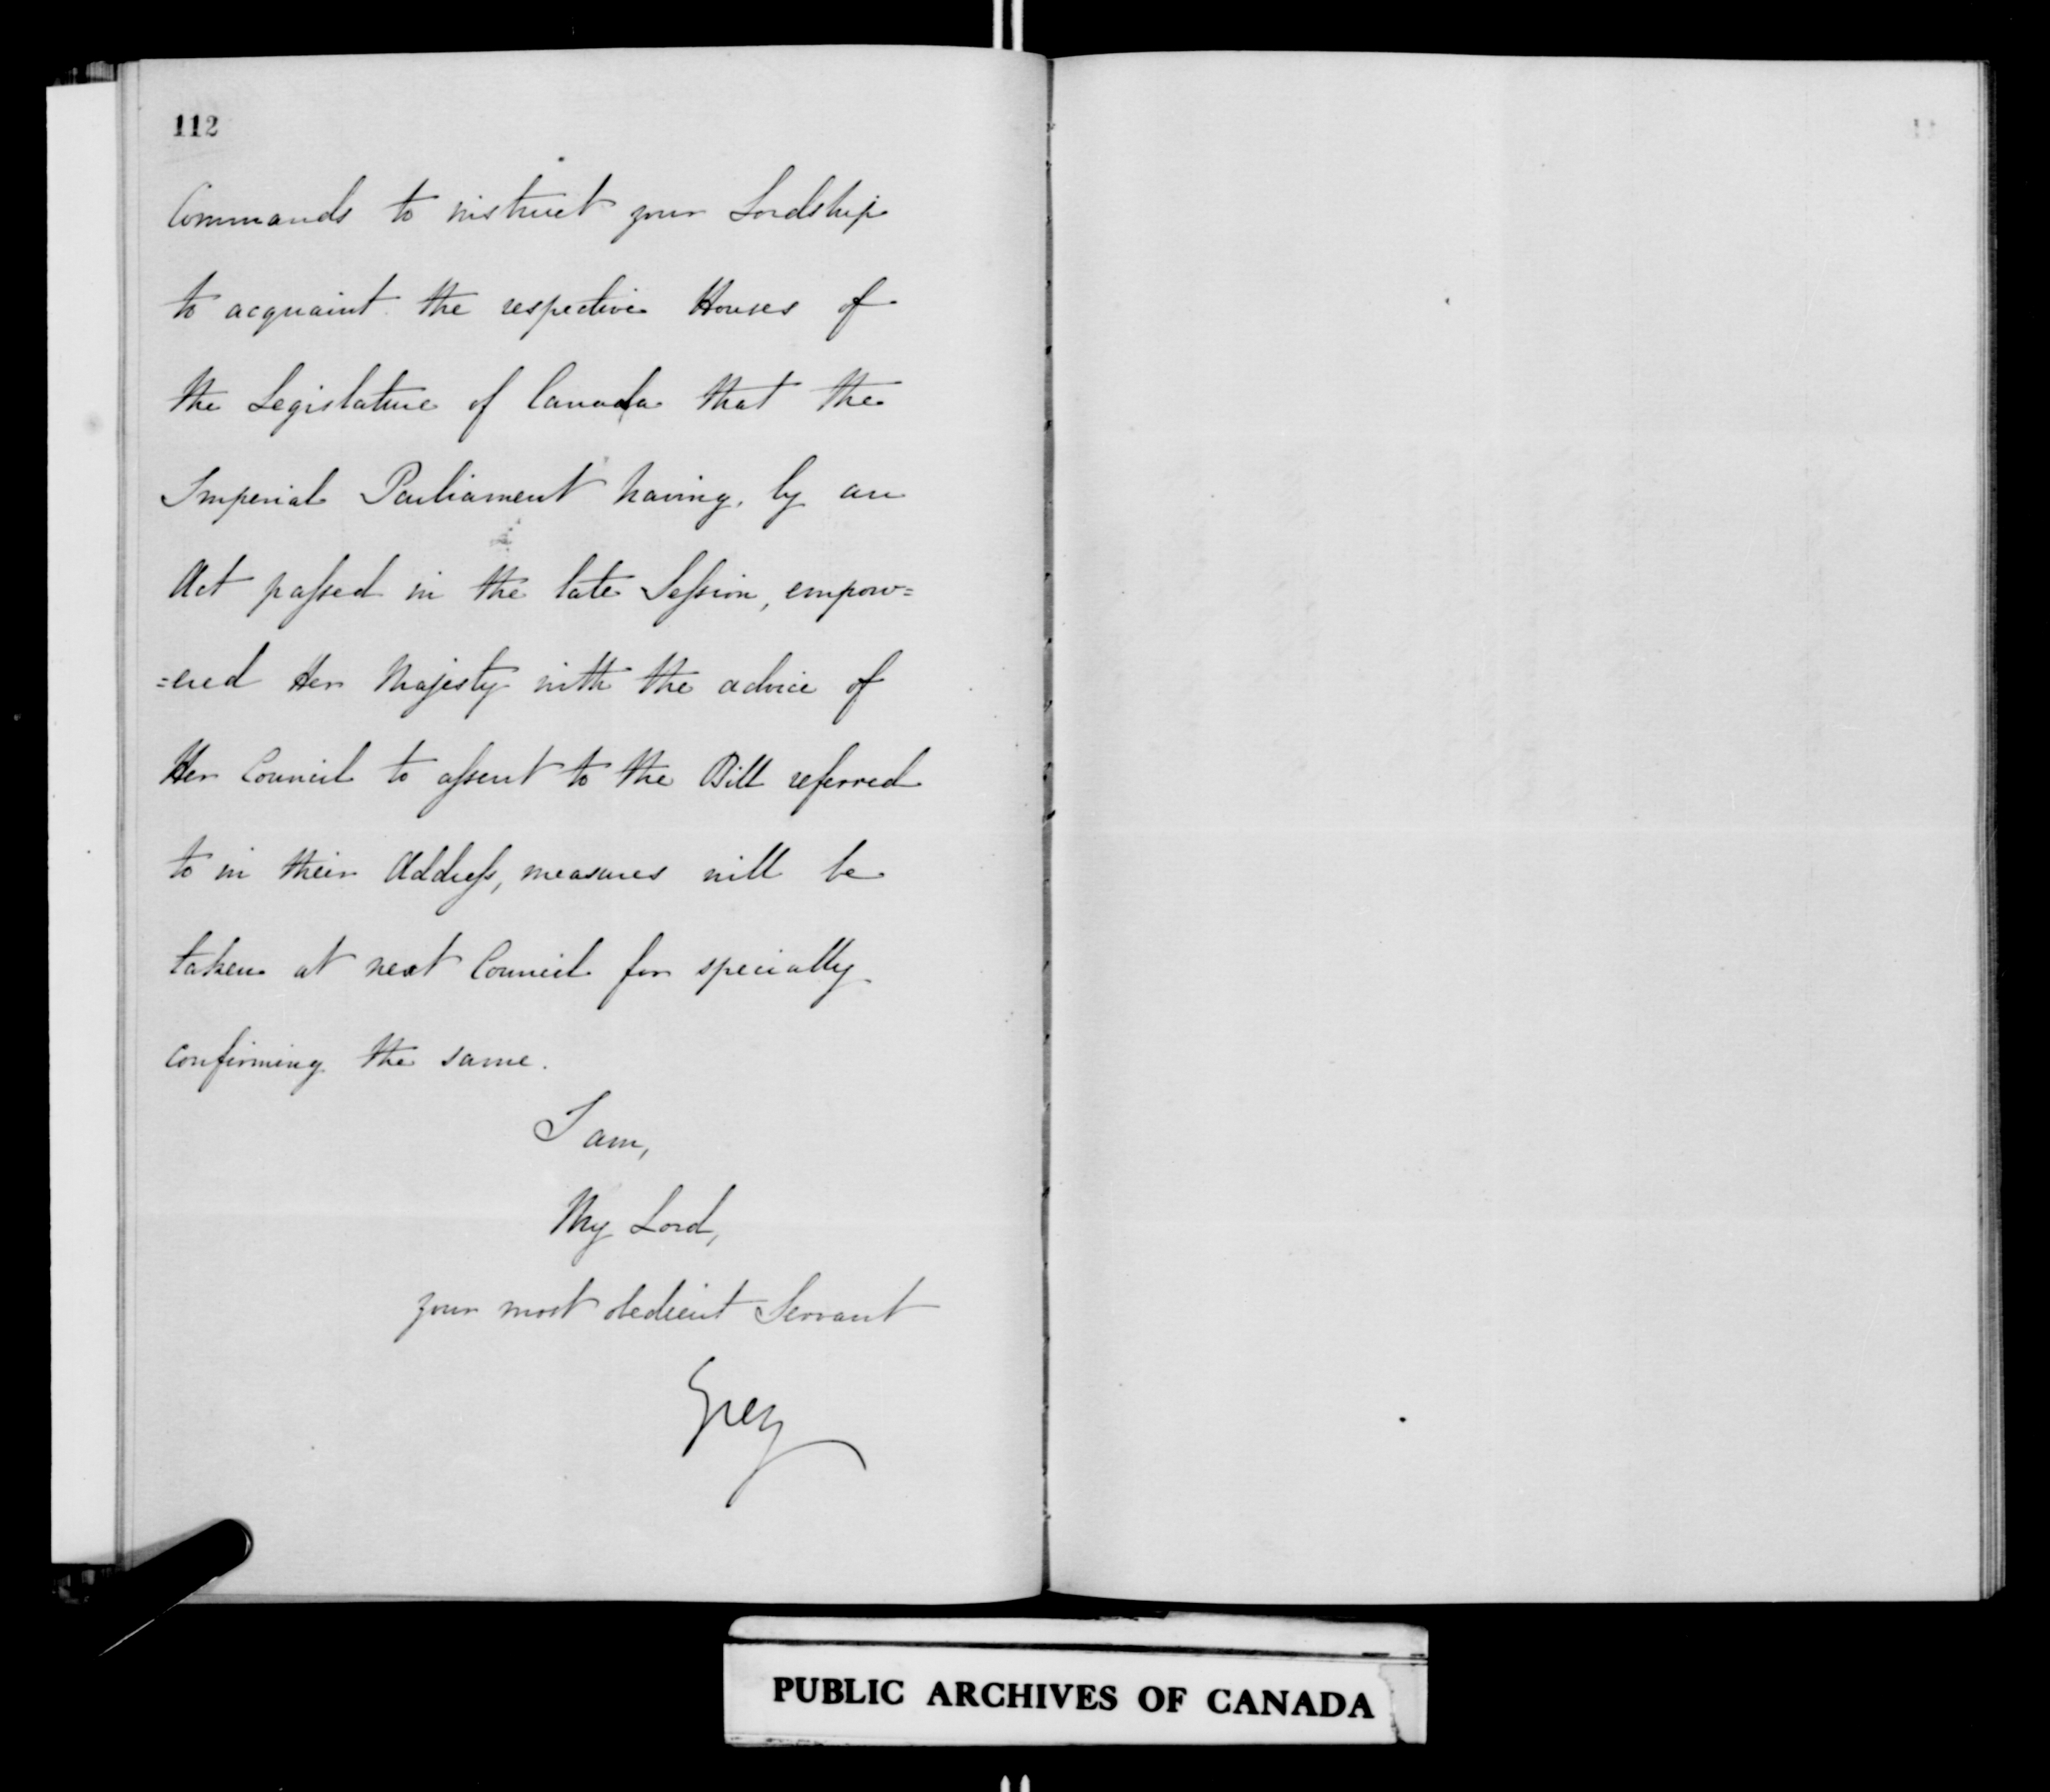 112
Commands to instruct your Lordship
to acquaint the respective Houses of
the Legislature of Canada that the
Imperial Parliament having, by an
Act passed in the late Session, empow=
=ered Her Majesty with the advice of
Her Council to assent to the Bill referred
to in their Address, measures will be
taken at next Council for specially
confirming the same.
I am,
My Lord,
your most obedient Servant
Grey
PUBLIC ARCHIVES OF CANADA